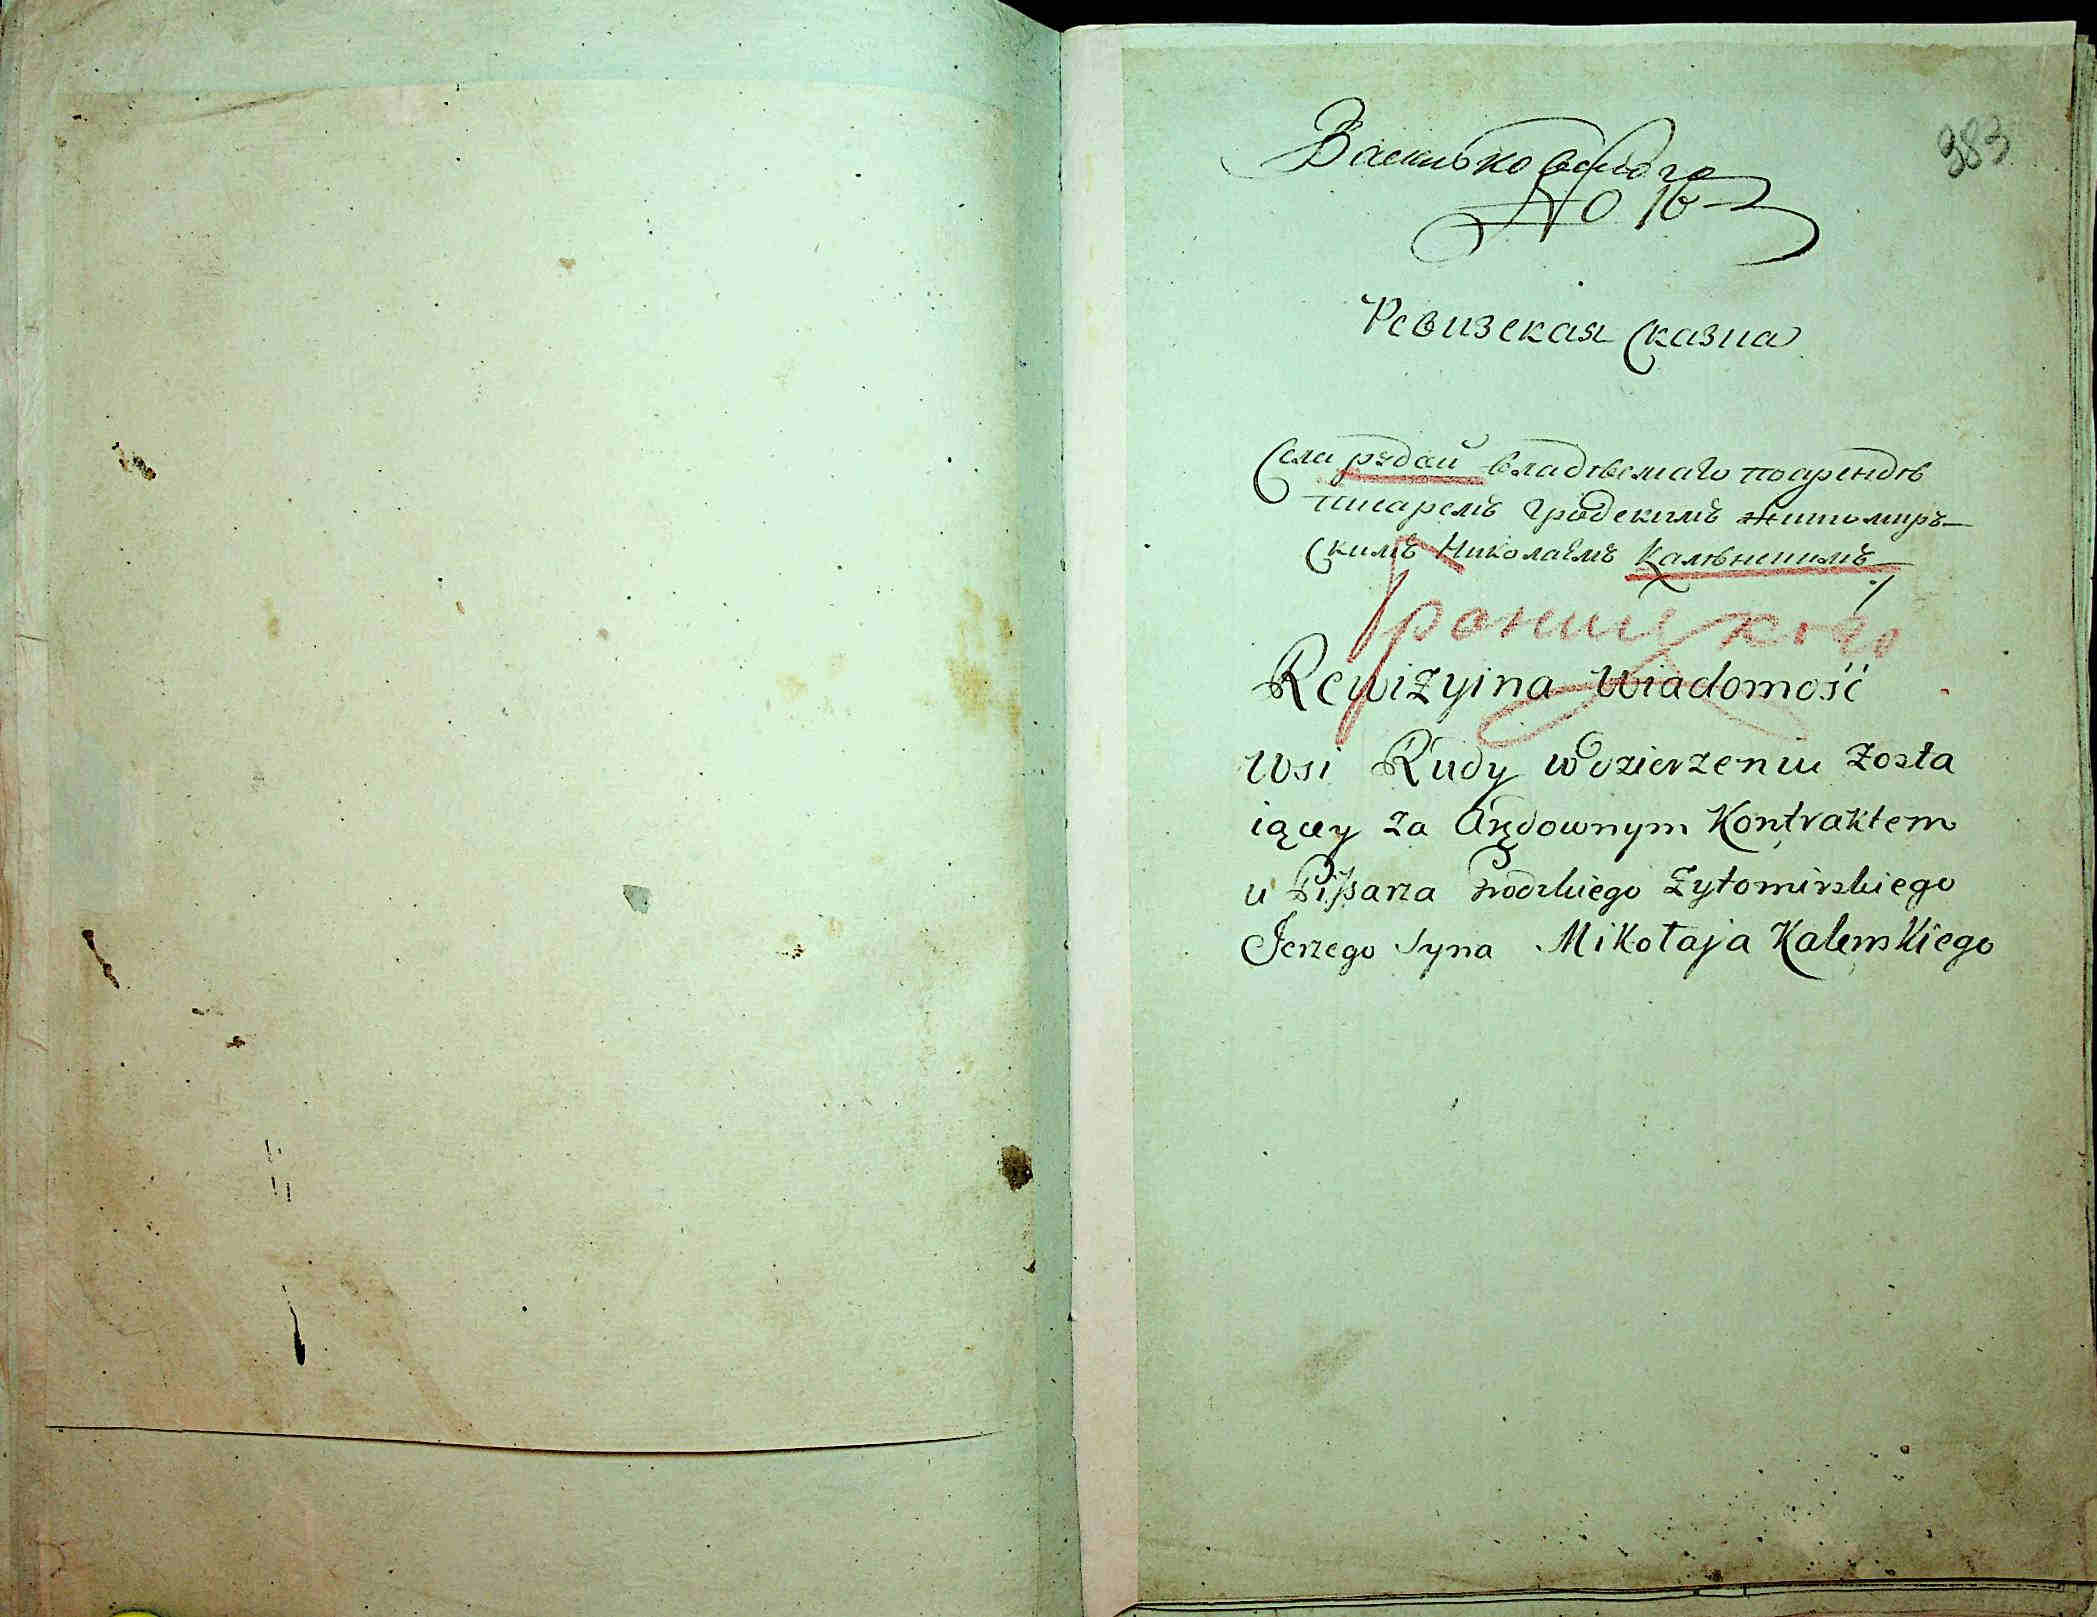 383
Васильковского
No 16
Ревизская Сказка
Села рудой владѣемаго поарендѣ
писаремъ гродскимъ житомиръ–
скимъ Николаемъ
Rewizyina Wiadomość
Wsi Rudy w dzierzeniu zosta
iącey za Arędownym Kontraktem
u Pisarza Grodzkiego Zytomirskiego
Jerzego Syna Mikołaja Kalenskiego